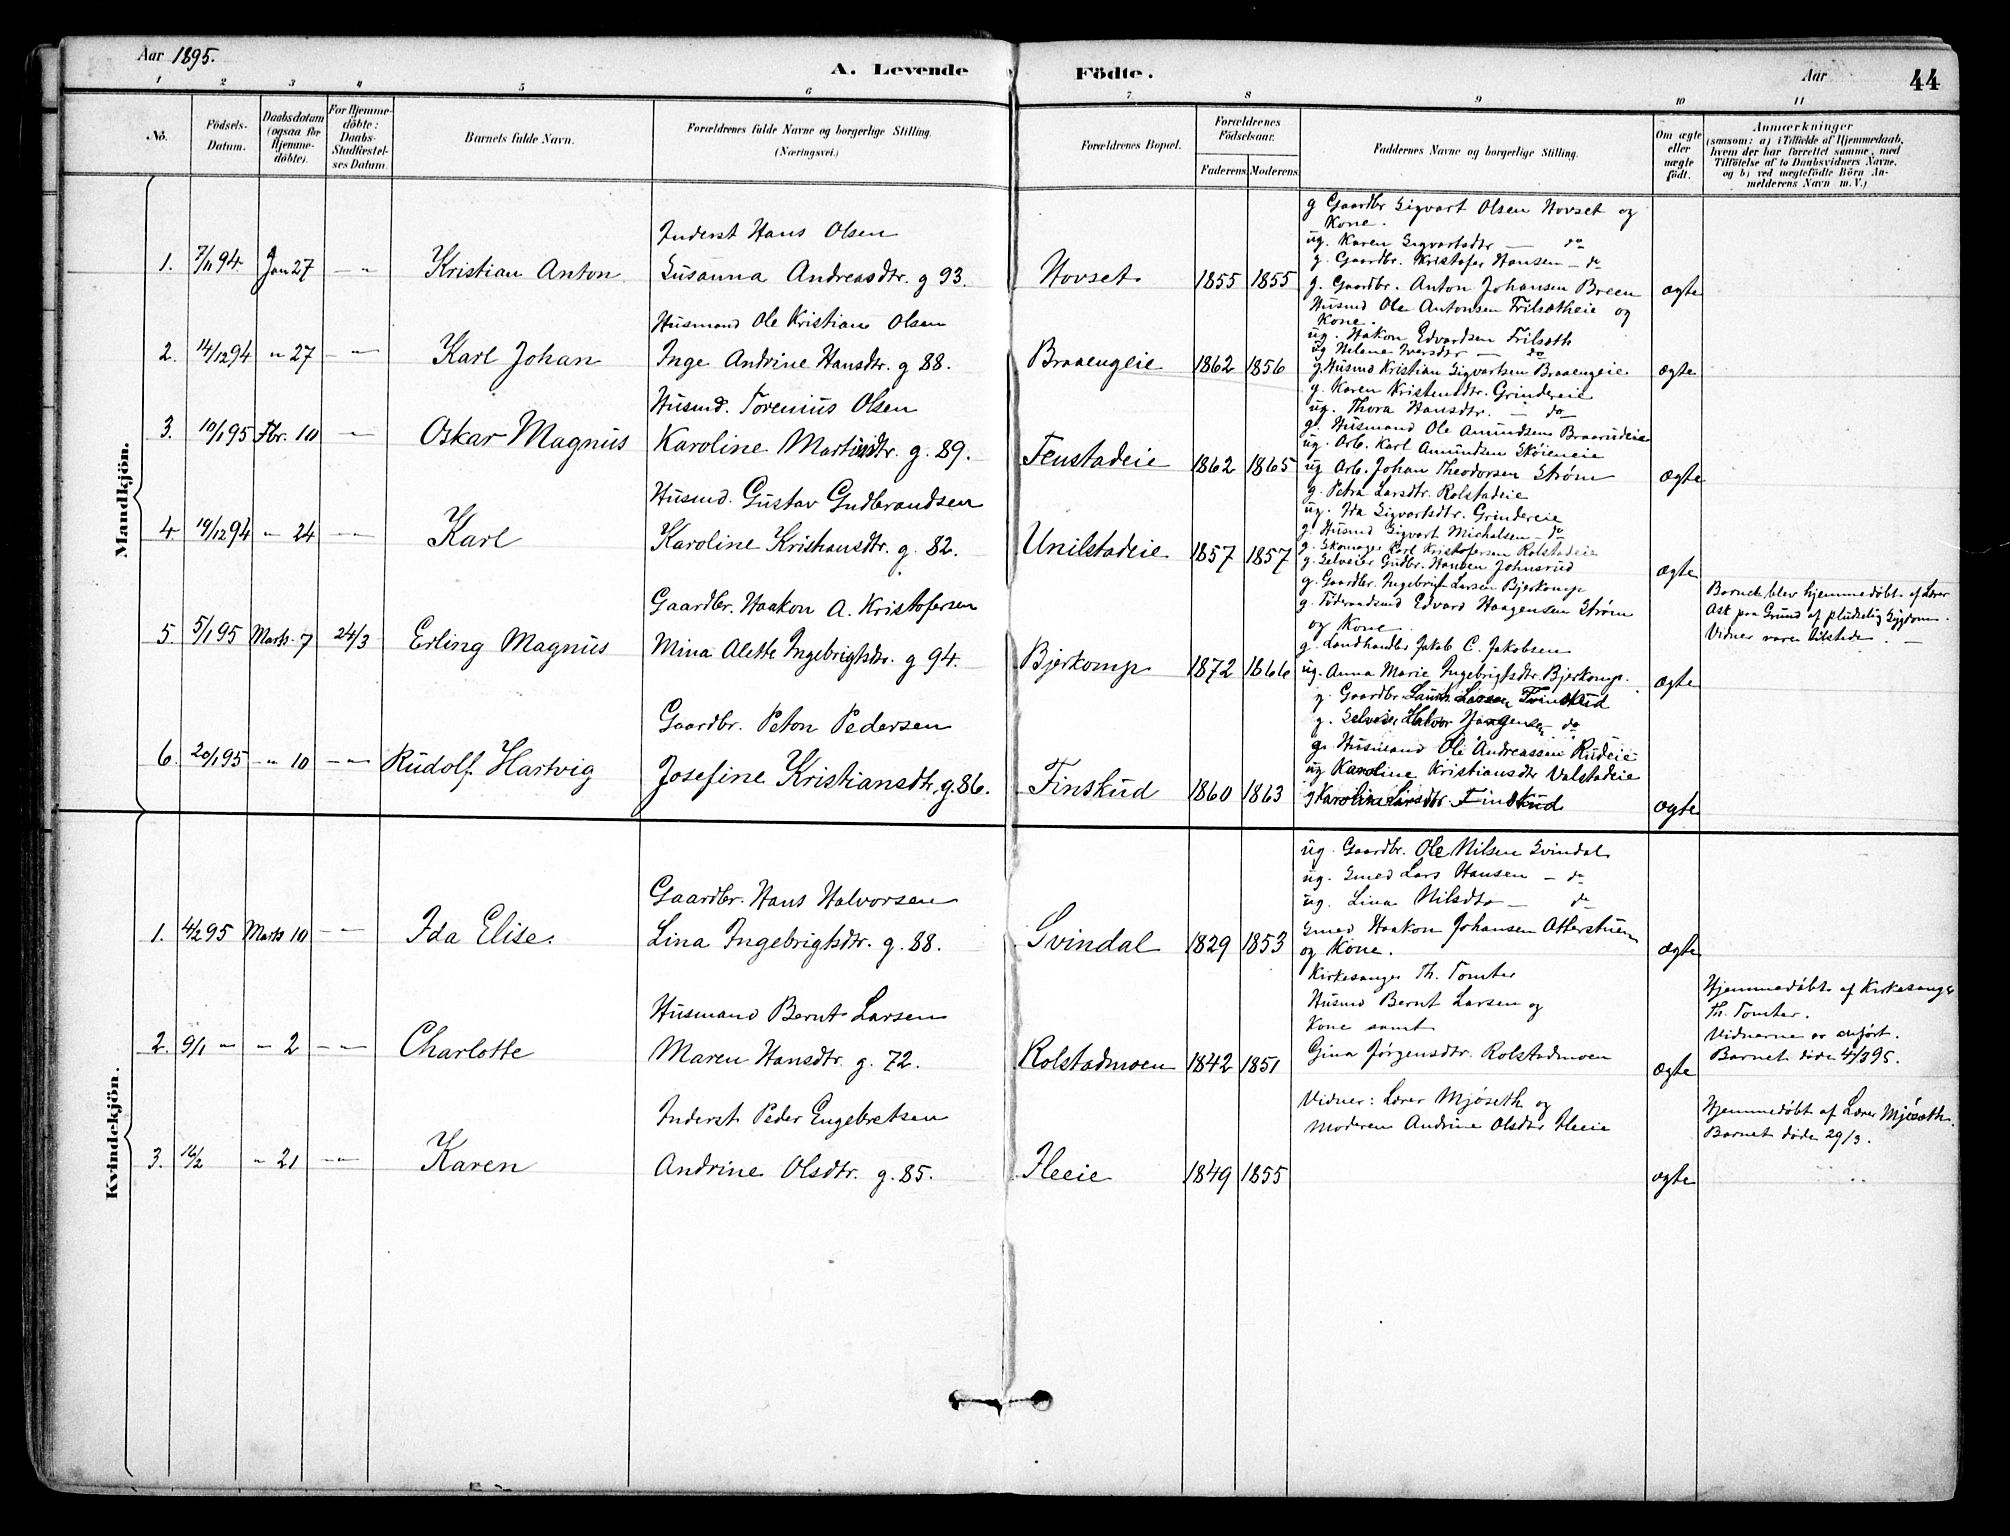 Aar 1895.
A. Levende Födte.
Aar
44
1 2 3 4 5 6 7 8 9 10 11
No.
Födsels-Datum.
Daabsdatum (ogsaa for Hjemmedöbte).
For Hjemmedöbte: Daabs-Stadfæstelses Datum.
Barnets fulde Navn.
Forældrenes fulde Navne og borgerlige Stilling. (Næringsvei.)
Forældrenes Bopæl.
Forældrenes Födselsaar.
Faderens. Moderens.
Faddernes Navne og borgerlige Stilling.
Om ægte eller uægte födt.
Anmærkninger
(saasom: a) i Tilfælde af Hjemmedaab, hvem der har forrettet samme, med Tilföielse af to Daabsvidners Navne, og b) ved uægtefödte Börn Anmelderens Navn m. V.)
Mandkjön.
1. 7/11 94 Jan 27 — „ Kristian Anton
Inderst Hans Olsen
Susanna Andreasdtr. g 93.
Hovset 1855 1855
g Gaardbr Sigvart Olsen Hovset og
Kone.
ug. Karen Sigvartsdtr — do
g. Gaardbr. Kristofer Hansen — do
g. Gaardbr. Anton Johansen Breen
ægte
2. 14/12 94 „ 27 — „ Karl Johan
Husmand Ole Kristian Olsen
Inge Andrine Hansdtr. g 88.
Braaengeie 1862 1856
Husmd Ole Antonsen Frilsætheie og
Kone.
ug. Hakon Edvardsen Frilsæth
ug Helene Iversdtr — do
g. Husmd Kristian Sigvartsen Braaengeie
ægte
3. 10/1 95 Fbr. 10 — „ Oskar Magnus
Husmd. Torenius Olsen
Karoline Martinsdtr. g. 89.
Fenstadeie 1862 1865
g. Karen Kristensdtr. Grindereie
ug. Thora Hansdtr. — do
g. Husmand Ole Amundsen Braarudeie
ug. Arb. Karl Amundsen Skøieneie
ug Arb. Johan Theodorsen Strøm
ægte
4 19/12 94 „ 24 — „ Karl
Husmd. Gustav Gudbrandsen
Karoline Kristiansdtr. g. 82.
Unilstadeie 1857 1857
g. Petra Larsdtr. Rolstadeie
ug. Ida Sigvartsdtr. Grindereie
g. Husmd Sigvart Michalsen — do
g. Skomager Karl Kristofersen Rolstadeie
g. Selveier Gudbr. Hansen Johnsrud
ægte
5. 5/1 95 Marts 7 24/3 Erling Magnus
Gaardbr. Haakon A. Kristofersen
Mina Alette Ingebrigtsdtr. g 94.
Bjerkomp 1872 1866
g. Gaardbr. Ingebrigt Larsen Bjerkomp
g. Föderaadsmd Edvard Haagensen Strøm
og Kone.
g. Landhandler Jakob C. Jakobsen
ug. Anna Marie Ingebrigtsdtr. Bjerkomp.
ægte
Barnet blev hjemmedøbt af Lærer
Ask paa Grund af pludselig Sygdom.
Vidner vare tilstede. —
6. 20/1 95 „ 10 — „ Rudolf Hartvig
Gaardbr. Peton Pedersen
Josefine Kristiansdtr. g. 86.
Finskud 1860 1863
g. Gaardbr. Larsen Finskud
g. Selveier Halvor — do
g. Husmand Ole Andreassen Rudeie
ug Karoline Kristiansdtr Valstadeie
g Karoline Larsdtr. Finskud
ægte
Kvindekjön.
1. 4/2 95 Marts 10 — „ Ida Elise.
Gaardbr. Hans Halvorsen
Lina Ingebrigtsdtr. g. 88.
Svindal 1829 1853
ug. Gaardbr. Ole Nilsen Svindal
ug. Smed Lars Hansen — do
ug. Lina Nilsdtr — do
Smed Haakon Johansen Atterstuen
og Kone.
ægte
2. 9/1 „ „ 2 — „ Charlotte
Husmand Bernt Larsen
Maren Hansdtr. g. 72.
Rolstadmoen 1842 1851
Kirkesanger Th. Tomter
Husmd Bernt Larsen og
Kone samt
Gina Jørgensdtr. Rolstadmoen
ægte
Hjemmedøbt af Kirkesanger
Th. Tomter.
Vidnerne er anført.
Barnet døde 4/3 95.
3. 16/2 „ 21 — „ Karen
Inderst Peder Engebretsen
Andrine Olsdtr. g. 85.
Ileeie 1849 1855
Vidner: Lærer Mjøseth og
Moderen Andrine Olsdtr Ileeie
ægte
Hjemmedøbt af Lærer Mjøseth.
Barnet døde 29/3.